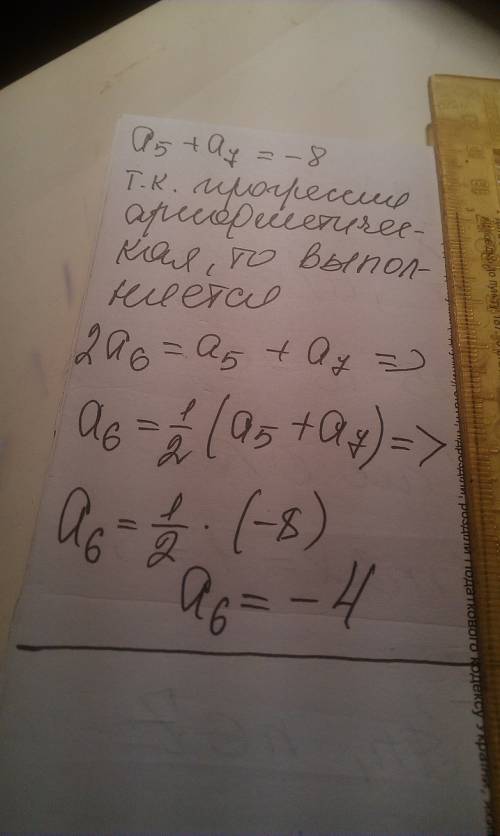 a₅ + a₇ = -8
т.к. прогрессия
арифметичес-
кая, то выпол-
няется
2a₆ = a₅ + a₇ =>
a₆ = 1/2 (a₅ + a₇) =>
a₆ = 1/2 · (-8)
a₆ = -4